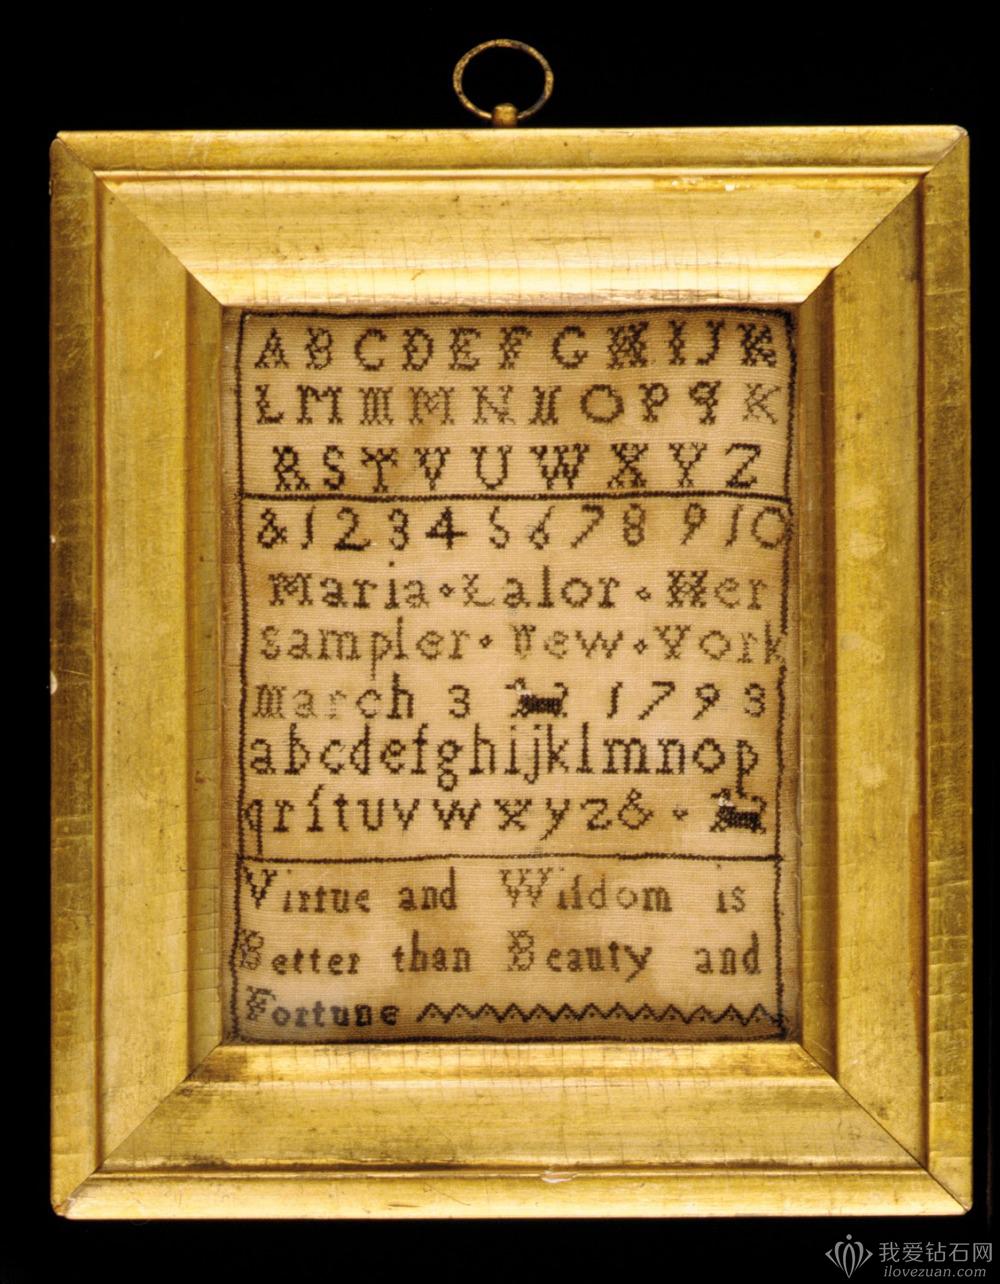 A B C D E F G H I J K
L M M M N N O P Q K
R S T V U W X Y Z
& 1 2 3 4 5 6 7 8 9 10
Maria · Lalor · Her
sampler · New · York
March 3 1793
a b c d e f g h i j k l m n o p
q r ſ t u v w x y z & ·
Virtue and Wiſdom is
Better than Beauty and
Fortune
我爱钻石网
ilovezuan.com